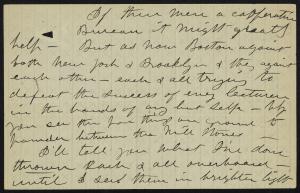 If there were a cooperative
Bureau it might greatly
help — But as now Boston against
both New York & Brooklyn & they again
each other — each & all trying to
defeat the success of every lecturer
in the hands of any but self — by
you see the poor things are ground to
powder between the Mill Stones —
I'll tell you what I've done
thrown Each & all overboard
until I see them in brighter light